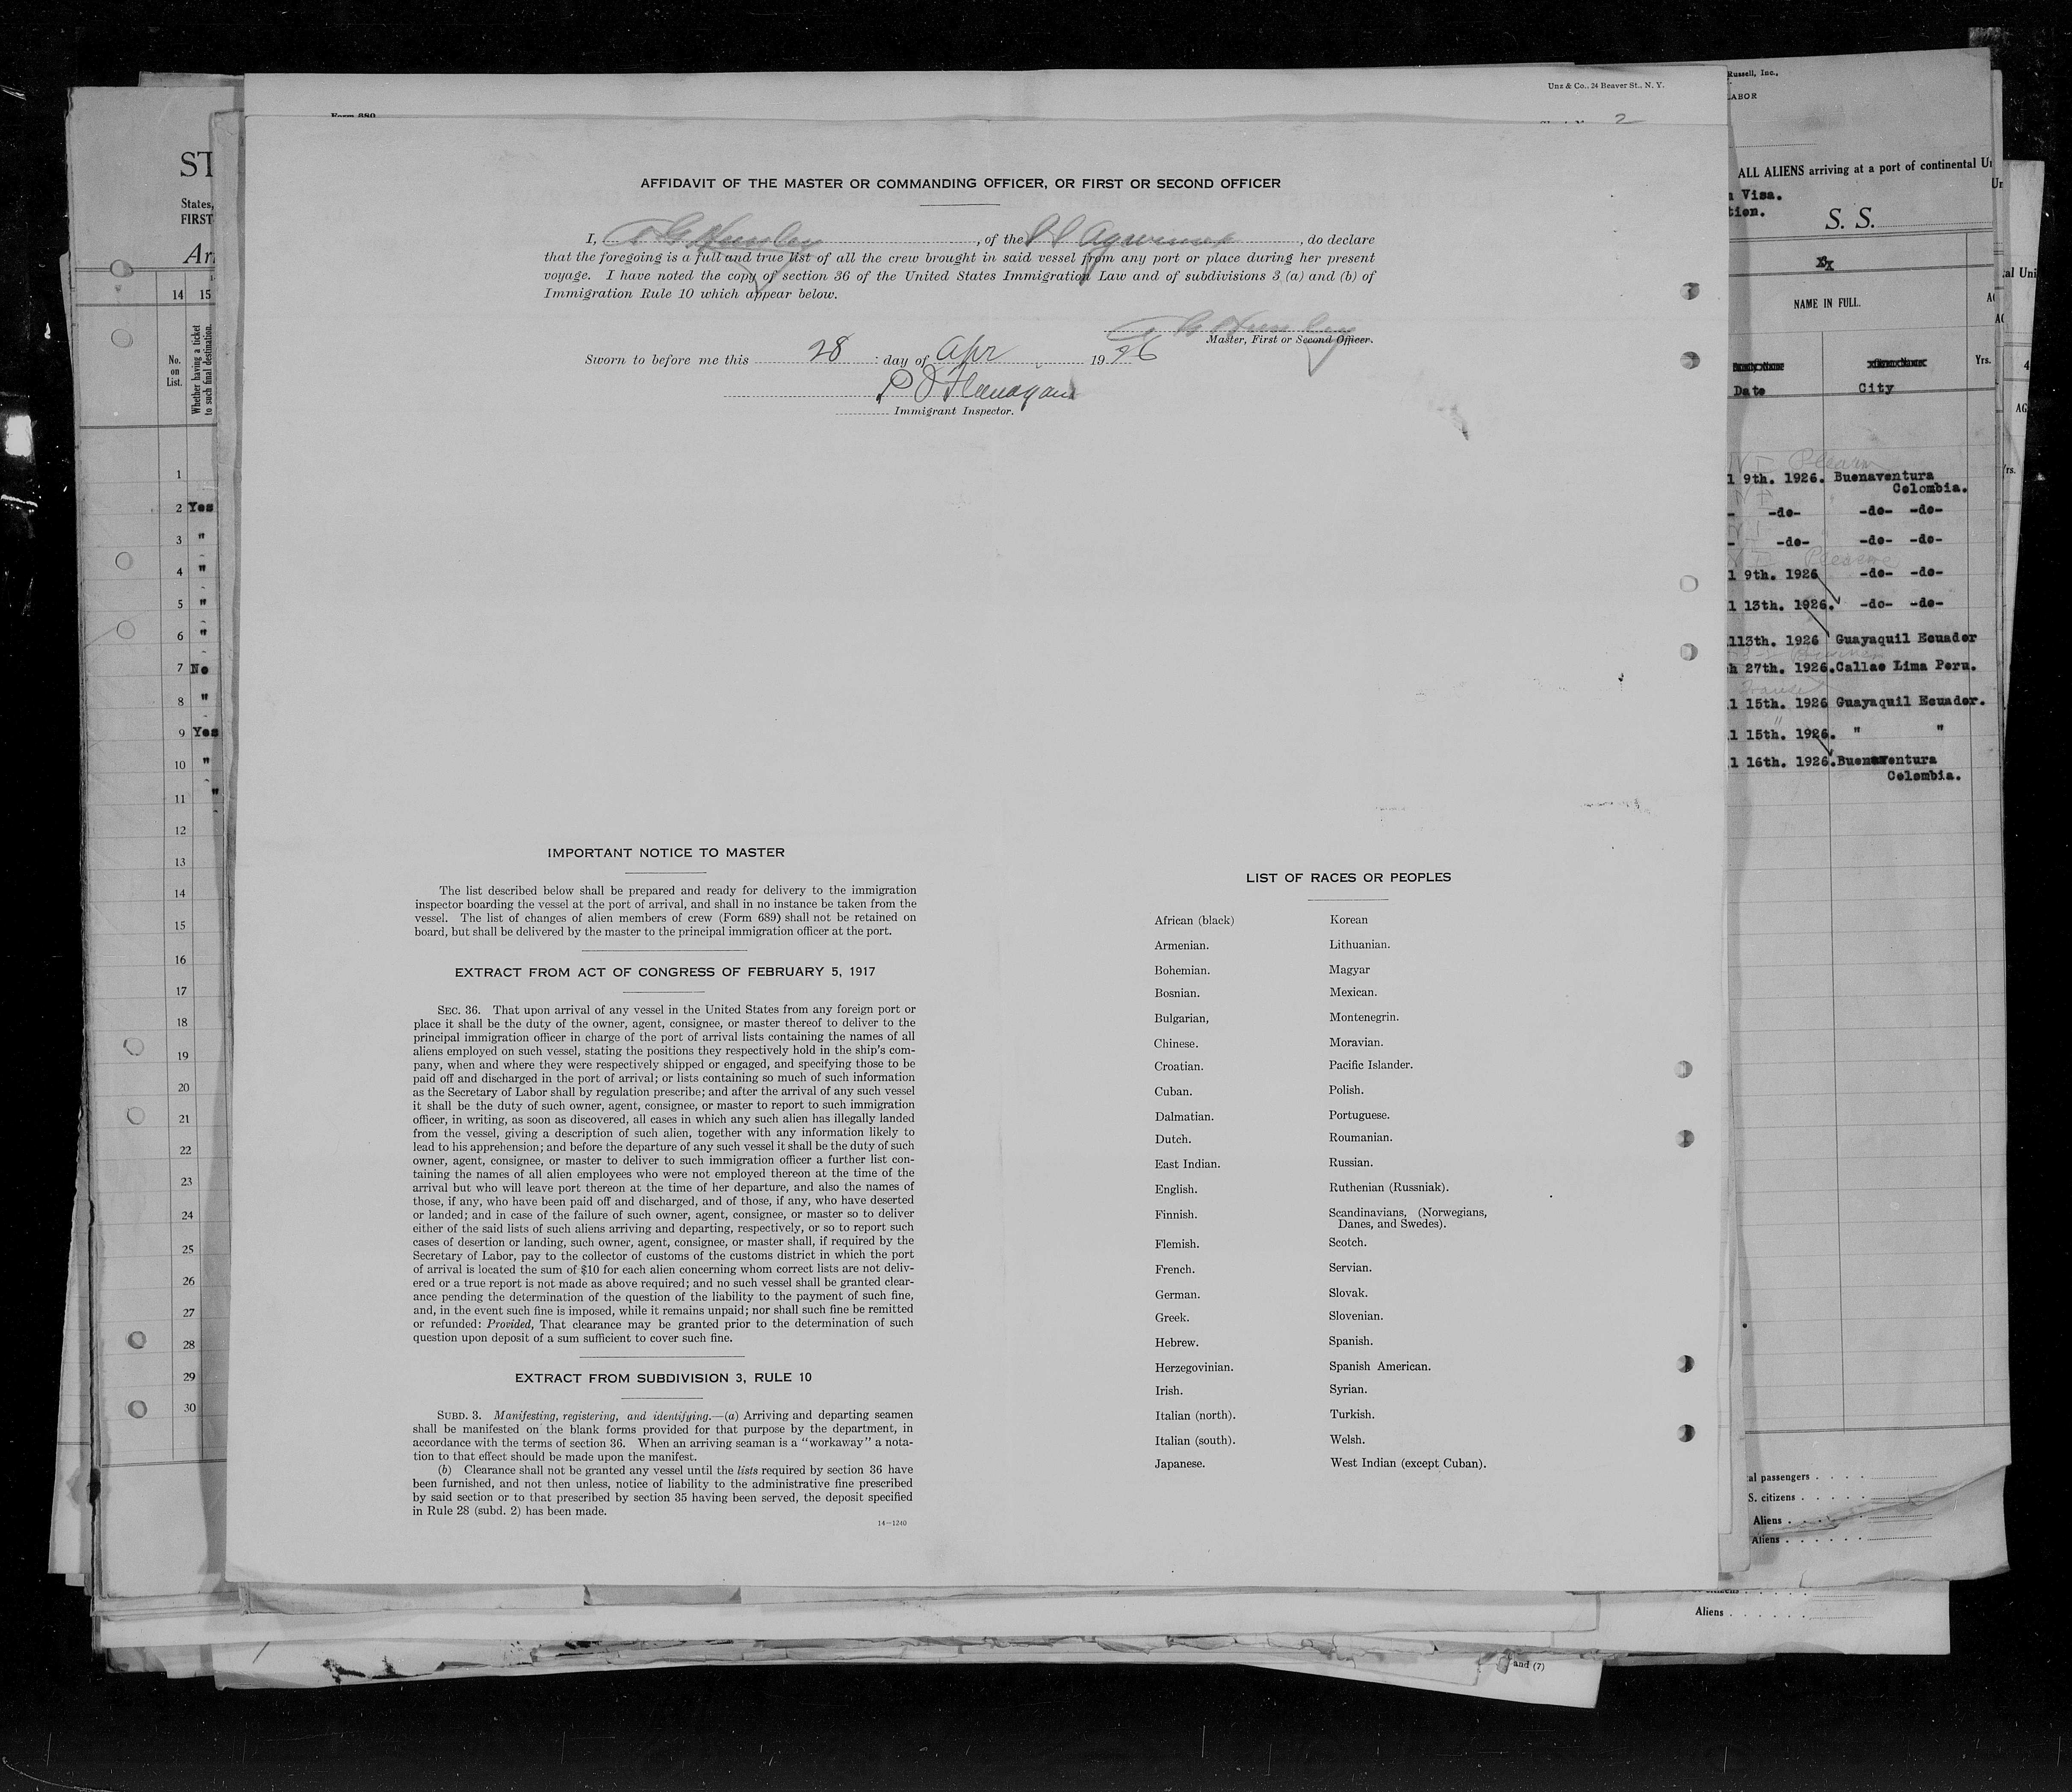 Unz & Co., 24 Beaver St., N. Y.
Form 689
2
AFFIDAVIT OF THE MASTER OR COMMANDING OFFICER, OR FIRST OR SECOND OFFICER
I, , of the SS , do declare
that the foregoing is a full and true list of all the crew brought in said vessel from any port or place during her present
voyage. I have noted the copy of section 36 of the United States Immigration Law and of subdivisions 3 (a) and (b) of
Immigration Rule 10 which appear below.
Master, First or Second Officer.
Sworn to before me this 28 day of Apr 1926
P J Flanagan
Immigrant Inspector.
IMPORTANT NOTICE TO MASTER
The list described below shall be prepared and ready for delivery to the immigration
inspector boarding the vessel at the port of arrival, and shall in no instance be taken from the
vessel. The list of changes of alien members of crew (Form 689) shall not be retained on
board, but shall be delivered by the master to the principal immigration officer at the port.
EXTRACT FROM ACT OF CONGRESS OF FEBRUARY 5, 1917
SEC. 36. That upon arrival of any vessel in the United States from any foreign port or
place it shall be the duty of the owner, agent, consignee, or master thereof to deliver to the
principal immigration officer in charge of the port of arrival lists containing the names of all
aliens employed on such vessel, stating the positions they respectively hold in the ship's com-
pany, when and where they were respectively shipped or engaged, and specifying those to be
paid off and discharged in the port of arrival; or lists containing so much of such information
as the Secretary of Labor shall by regulation prescribe; and after the arrival of any such vessel
it shall be the duty of such owner, agent, consignee, or master to report to such immigration
officer, in writing, as soon as discovered, all cases in which any such alien has illegally landed
from the vessel, giving a description of such alien, together with any information likely to
lead to his apprehension; and before the departure of any such vessel it shall be the duty of such
owner, agent, consignee, or master to deliver to such immigration officer a further list con-
taining the names of all alien employees who were not employed thereon at the time of the
arrival but who will leave port thereon at the time of her departure, and also the names of
those, if any, who have been paid off and discharged, and of those, if any, who have deserted
or landed; and in case of the failure of such owner, agent, consignee, or master so to deliver
either of the said lists of such aliens arriving and departing, respectively, or so to report such
cases of desertion or landing, such owner, agent, consignee, or master shall, if required by the
Secretary of Labor, pay to the collector of customs of the customs district in which the port
of arrival is located the sum of $10 for each alien concerning whom correct lists are not deliv-
ered or a true report is not made as above required; and no such vessel shall be granted clear-
ance pending the determination of the question of the liability to the payment of such fine,
and, in the event such fine is imposed, while it remains unpaid; nor shall such fine be remitted
or refunded: Provided, That clearance may be granted prior to the determination of such
question upon deposit of a sum sufficient to cover such fine.
EXTRACT FROM SUBDIVISION 3, RULE 10
SUBD. 3. Manifesting, registering, and identifying.—(a) Arriving and departing seamen
shall be manifested on the blank forms provided for that purpose by the department, in
accordance with the terms of section 36. When an arriving seaman is a "workaway" a nota-
tion to that effect should be made upon the manifest.
(b) Clearance shall not be granted any vessel until the lists required by section 36 have
been furnished, and not then unless, notice of liability to the administrative fine prescribed
by said section or to that prescribed by section 35 having been served, the deposit specified
in Rule 28 (subd. 2) has been made.
14—1240
LIST OF RACES OR PEOPLES
African (black) Korean
Armenian. Lithuanian.
Bohemian. Magyar
Bosnian. Mexican.
Bulgarian, Montenegrin.
Chinese. Moravian.
Croatian. Pacific Islander.
Cuban. Polish.
Dalmatian. Portuguese.
Dutch. Roumanian.
East Indian. Russian.
English. Ruthenian (Russniak).
Finnish. Scandinavians, (Norwegians,
Danes, and Swedes).
Flemish. Scotch.
French. Servian.
German. Slovak.
Greek. Slovenian.
Hebrew. Spanish.
Herzegovinian. Spanish American.
Irish. Syrian.
Italian (north). Turkish.
Italian (south). Welsh.
Japanese. West Indian (except Cuban).
ST
States,
FIRST
Ar
14 15
No.
on
List.
Whether having a ticket
to such final destination.
1
2 Yes
3 "
4 "
5 "
6 "
7 No
8 "
9 Yes
10 "
11 "
12
13
14
15
16
17
18
19
20
21
22
23
24
25
26
27
28
29
30
Russell, Inc.,
LABOR
ALL ALIENS arriving at a port of continental Un
n Visa.
tion.
S. S.
XX
NAME IN FULL.
Yrs.
Date City
l 9th. 1926. Buenaventura
Colombia.
-do- -do- -do-
-do- -do- -do-
l 9th. 1926 -do- -do-
l 13th. 1926. -do- -do-
l13th. 1926 Guayaquil Ecuador
h 27th. 1926.Callao Lima Peru.
l 15th. 1926 Guayaquil Ecuador.
l 15th. 1926. " "
l 16th. 1926.Buenaventura
Colombia.
al passengers
S. citizens
Aliens
Aliens
Aliens
and (7)